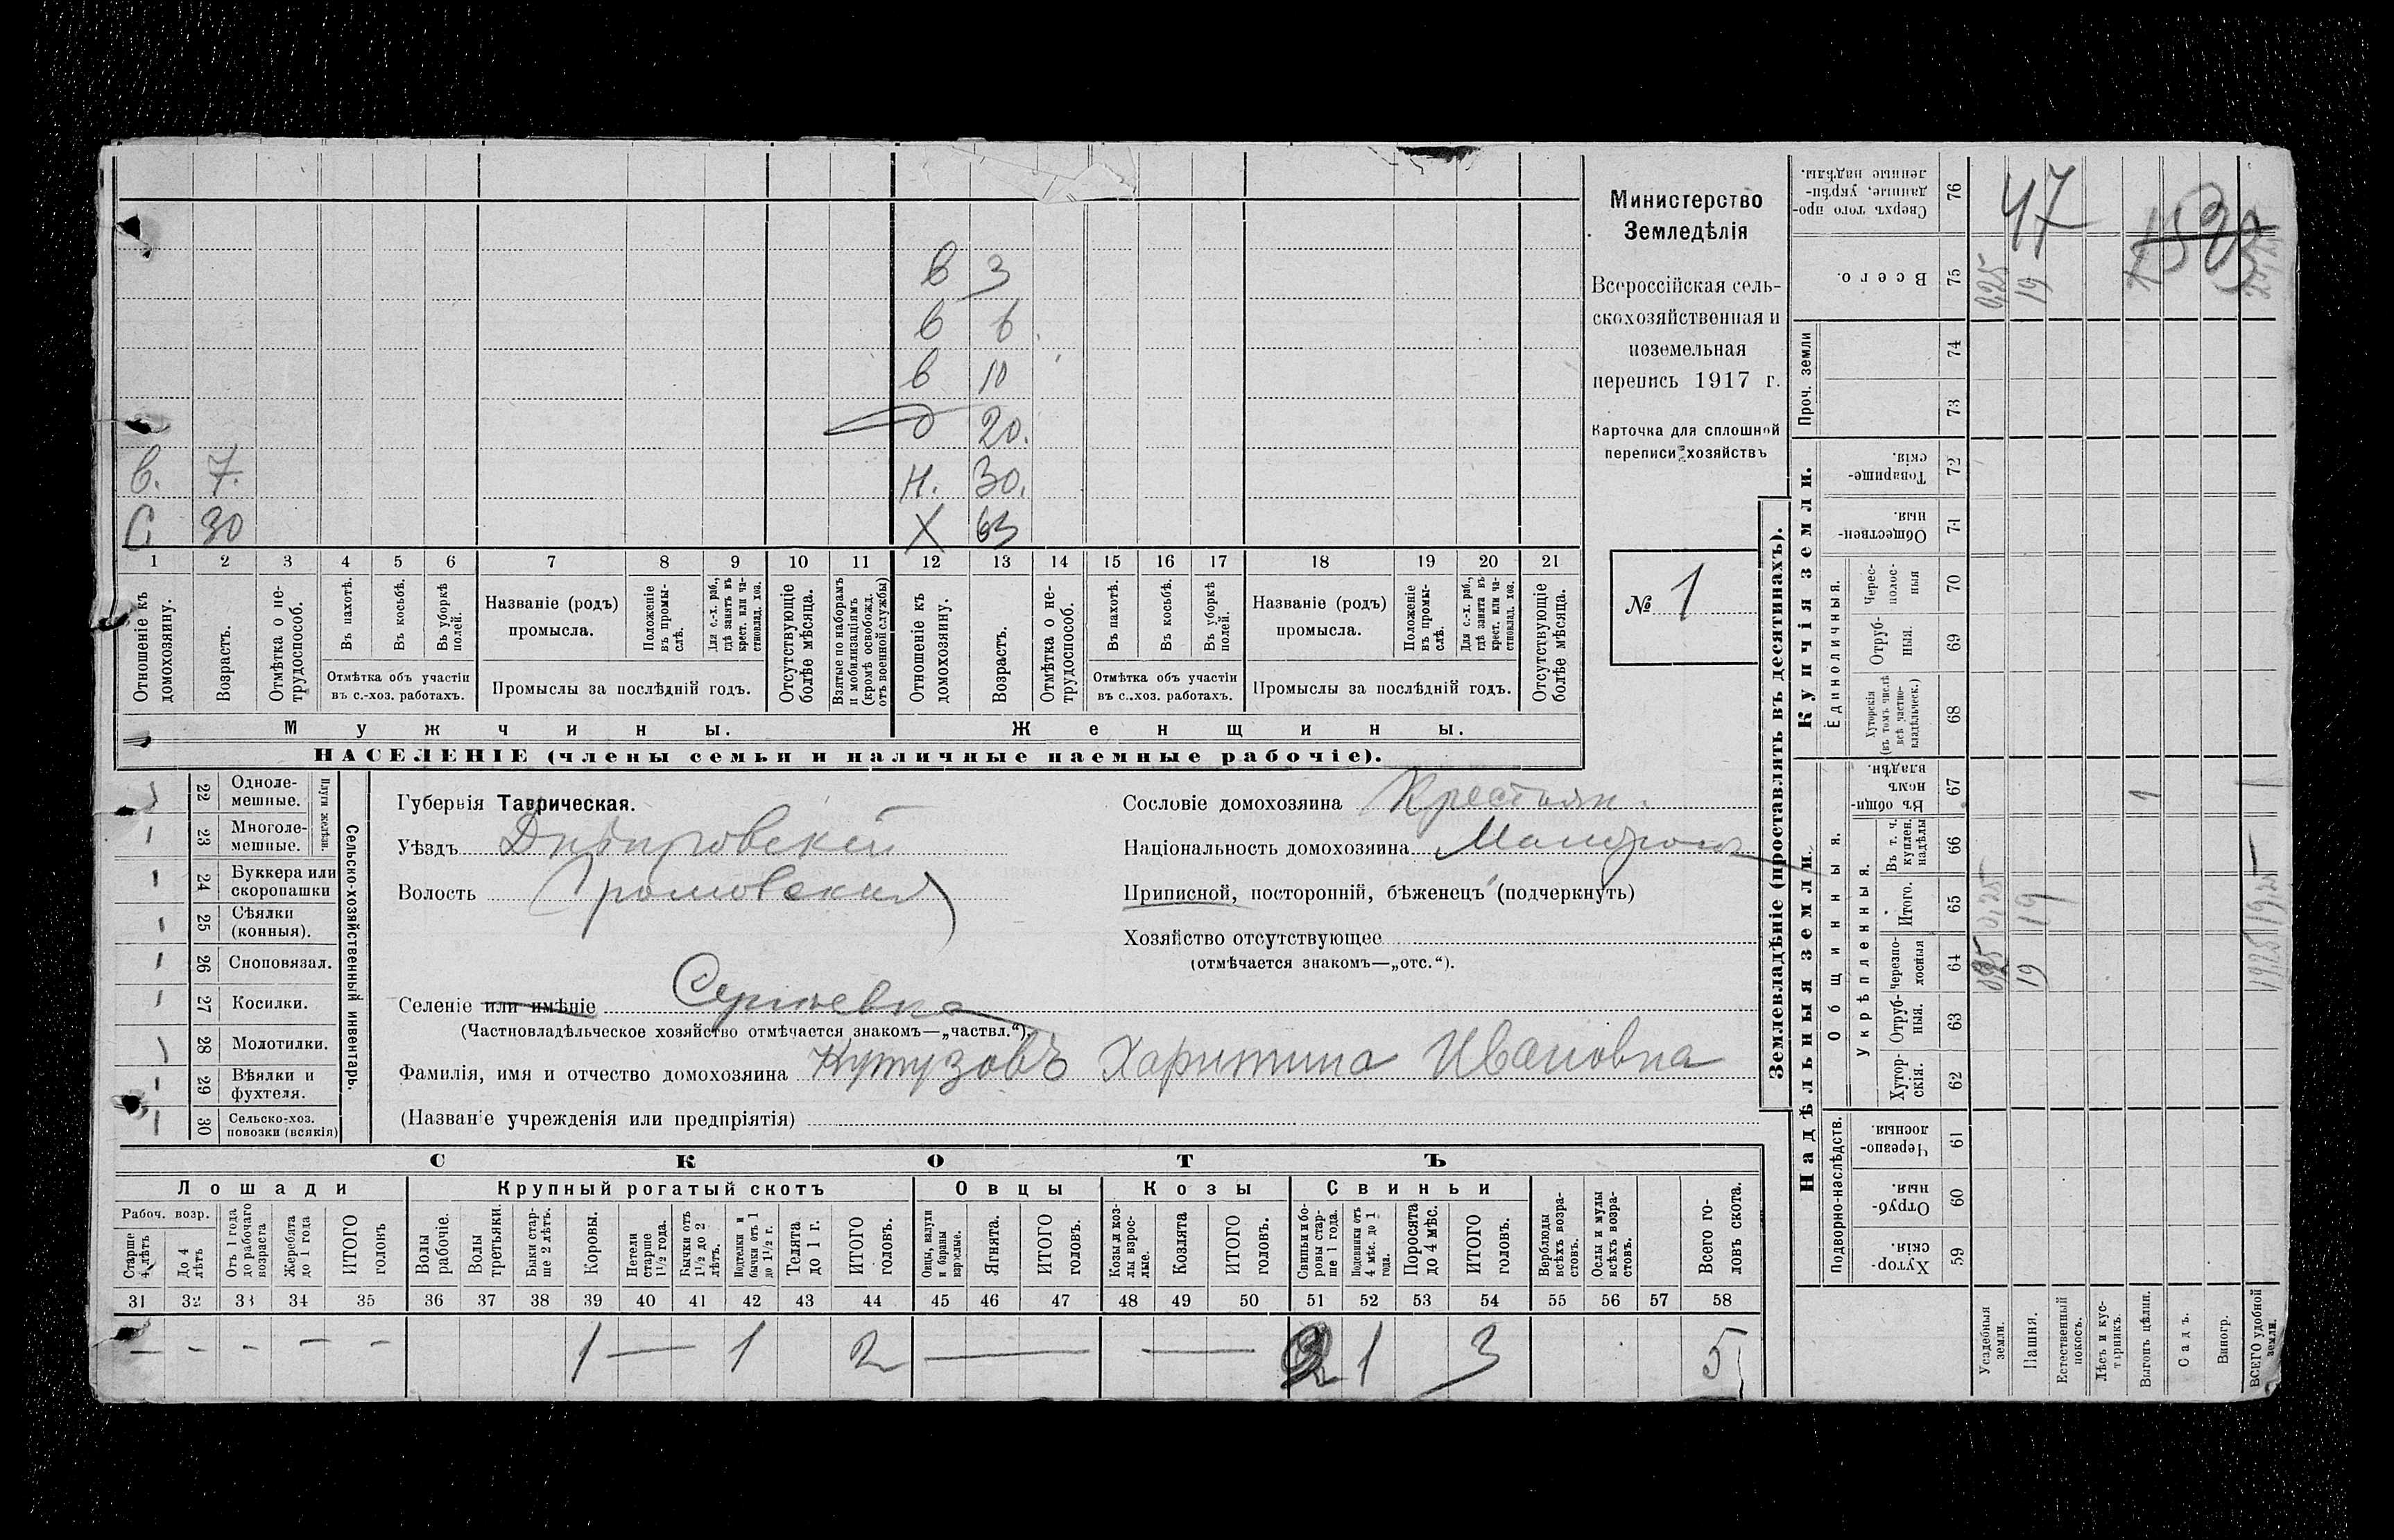 в 3
в 6
в 10
д 20.
в. 7. н. 30.
С 30 Х 63
1 2 3 4 5 6 7 8 9 10 11 12 13 14 15 16 17 18 19 20 21
Отношеніе къ домохозяину.
Возрастъ.
Отмѣтка о не-трудоспособ.
Въ пахотѣ.
Въ косьбѣ.
Въ уборкѣ полей.
Отмѣтка объ участіи
въ с.-хоз. работахъ.
Названіе (родъ)
промысла.
Положеніе въ промы-слѣ.
Для с.-х. раб., гдѣ занятъ въ крест. или ча-стновлад. хоз.
Промыслы за послѣдній годъ.
Отсутствующіе болѣе мѣсяца.
Взятые по наборамъ и мобилизаціямъ (кромѣ освобожд. отъ военной службы)
Отношеніе къ домохозяину.
Возрастъ.
Отмѣтка о не-трудоспособ.
Въ пахотѣ.
Въ косьбѣ.
Въ уборкѣ полей.
Отмѣтка объ участіи
въ с.-хоз. работахъ.
Названіе (родъ)
промысла.
Положеніе въ промы-слѣ.
Для с.-х. раб., гдѣ занята въ крест. или ча-стновлад. хоз.
Промыслы за послѣдній годъ.
Отсутствующіе болѣе мѣсяца.
Мужчины. Женщины.
НАСЕЛЕНІЕ (члены семьи и наличные наемные рабочіе).
Министерство
Земледѣлія
Всероссійская сель-
скохозяйственная и
поземельная
перепись 1917 г.
Карточка для сплошной
переписи хозяйствъ
№ 1
22 Одноле-
мешные.
23 Многоле-
мешные.
Плуги желѣзн.
24 Буккера или
скоропашки
25 Сѣялки
(конныя).
26 Сноповязал.
27 Косилки.
28 Молотилки.
29 Вѣялки и
фухтеля.
30 Сельско-хоз.
повозки (всякія)
Сельско-хозяйственный инвентарь.
Губернія Таврическая.
Уѣздъ Днѣпровскій
Волость Громовская
Селеніе или имѣніе Сергѣевка
(Частновладѣльческое хозяйство отмѣчается знакомъ—„частвл.“).
Фамилія, имя и отчество домохозяина Кутузовъ Харитина Ивановна
(Названіе учрежденія или предпріятія)
Сословіе домохозяина Крестьян.
Національность домохозяина Малорос
Приписной, посторонній, бѣженецъ (подчеркнуть)
Хозяйство отсутствующее
(отмѣчается знакомъ—„отс.“).
СКОТЪ
Лошади Крупный рогатый скотъ Овцы Козы Свиньи
Рабоч. возр.
Старше 4 лѣтъ
До 4 лѣтъ
Отъ 1 года до рабочаго возраста
Жеребята до 1 года
ИТОГО головъ
Волы рабочіе.
Волы третьяки.
Быки стар-ше 2 лѣтъ.
Коровы.
Нетели старше 1½ года.
Бычки отъ 1½ до 2 лѣтъ.
Подтелки и бычки отъ 1 до 1½ г.
Телята до 1 г.
ИТОГО головъ.
Овцы, валухи и бараны взрослые.
Ягнята.
ИТОГО головъ.
Козы и коз-лы взрос-лые.
Козлята
ИТОГО головъ.
Свиньи и бо-ровы стар-ше 1 года.
Подсвинки отъ 4 мѣс. до 1 года.
Поросята до 4 мѣс.
ИТОГО головъ.
Верблюды всѣхъ возра-стовъ.
Ослы и мулы всѣхъ возра-стовъ.
Всего го-ловъ скота.
31 32 33 34 35 36 37 38 39 40 41 42 43 44 45 46 47 48 49 50 51 52 53 54 55 56 57 58
— - - — - 1 — 1 2 — — 2 1 3 5
Землевладѣніе (проставлять въ десятинахъ).
Надѣльныя земли. Купчія земли.
Подворно-наслѣдств.
Общинныя.
Укрѣпленныя.
Единоличныя.
Проч. земли
Хутор-скія. 59
Отруб-ныя. 60
Черезпо-лосныя. 61
Хутор-скія. 62
Отруб-ныя. 63
черезпо-лосныя 64
Итого. 65
Въ т. ч. куплен. надѣлы 66
Въ общи-номъ владѣн. 67
Хуторскія (въ томъ числѣ всѣ частно-владѣльческ.) 68
Отруб-ныя. 69
Черес-полос-ныя 70
Обществен-ныя. 71
Товарище-скія. 72
73
74
Всего. 75
Сверхъ того про-данные, укрѣп-ленные надѣлы. 76
Усадебныя земли. 0,25 0,25
Пашня. 19 19 19
Естественный покосъ.
Лѣсъ и кус-тарникъ.
Выгонъ цѣлин. 1
Садъ.
Виногр.
ВСЕГО удобной земли. 19,25 19,25 1
47